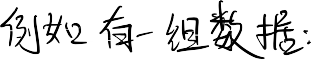 例如有一组数据: